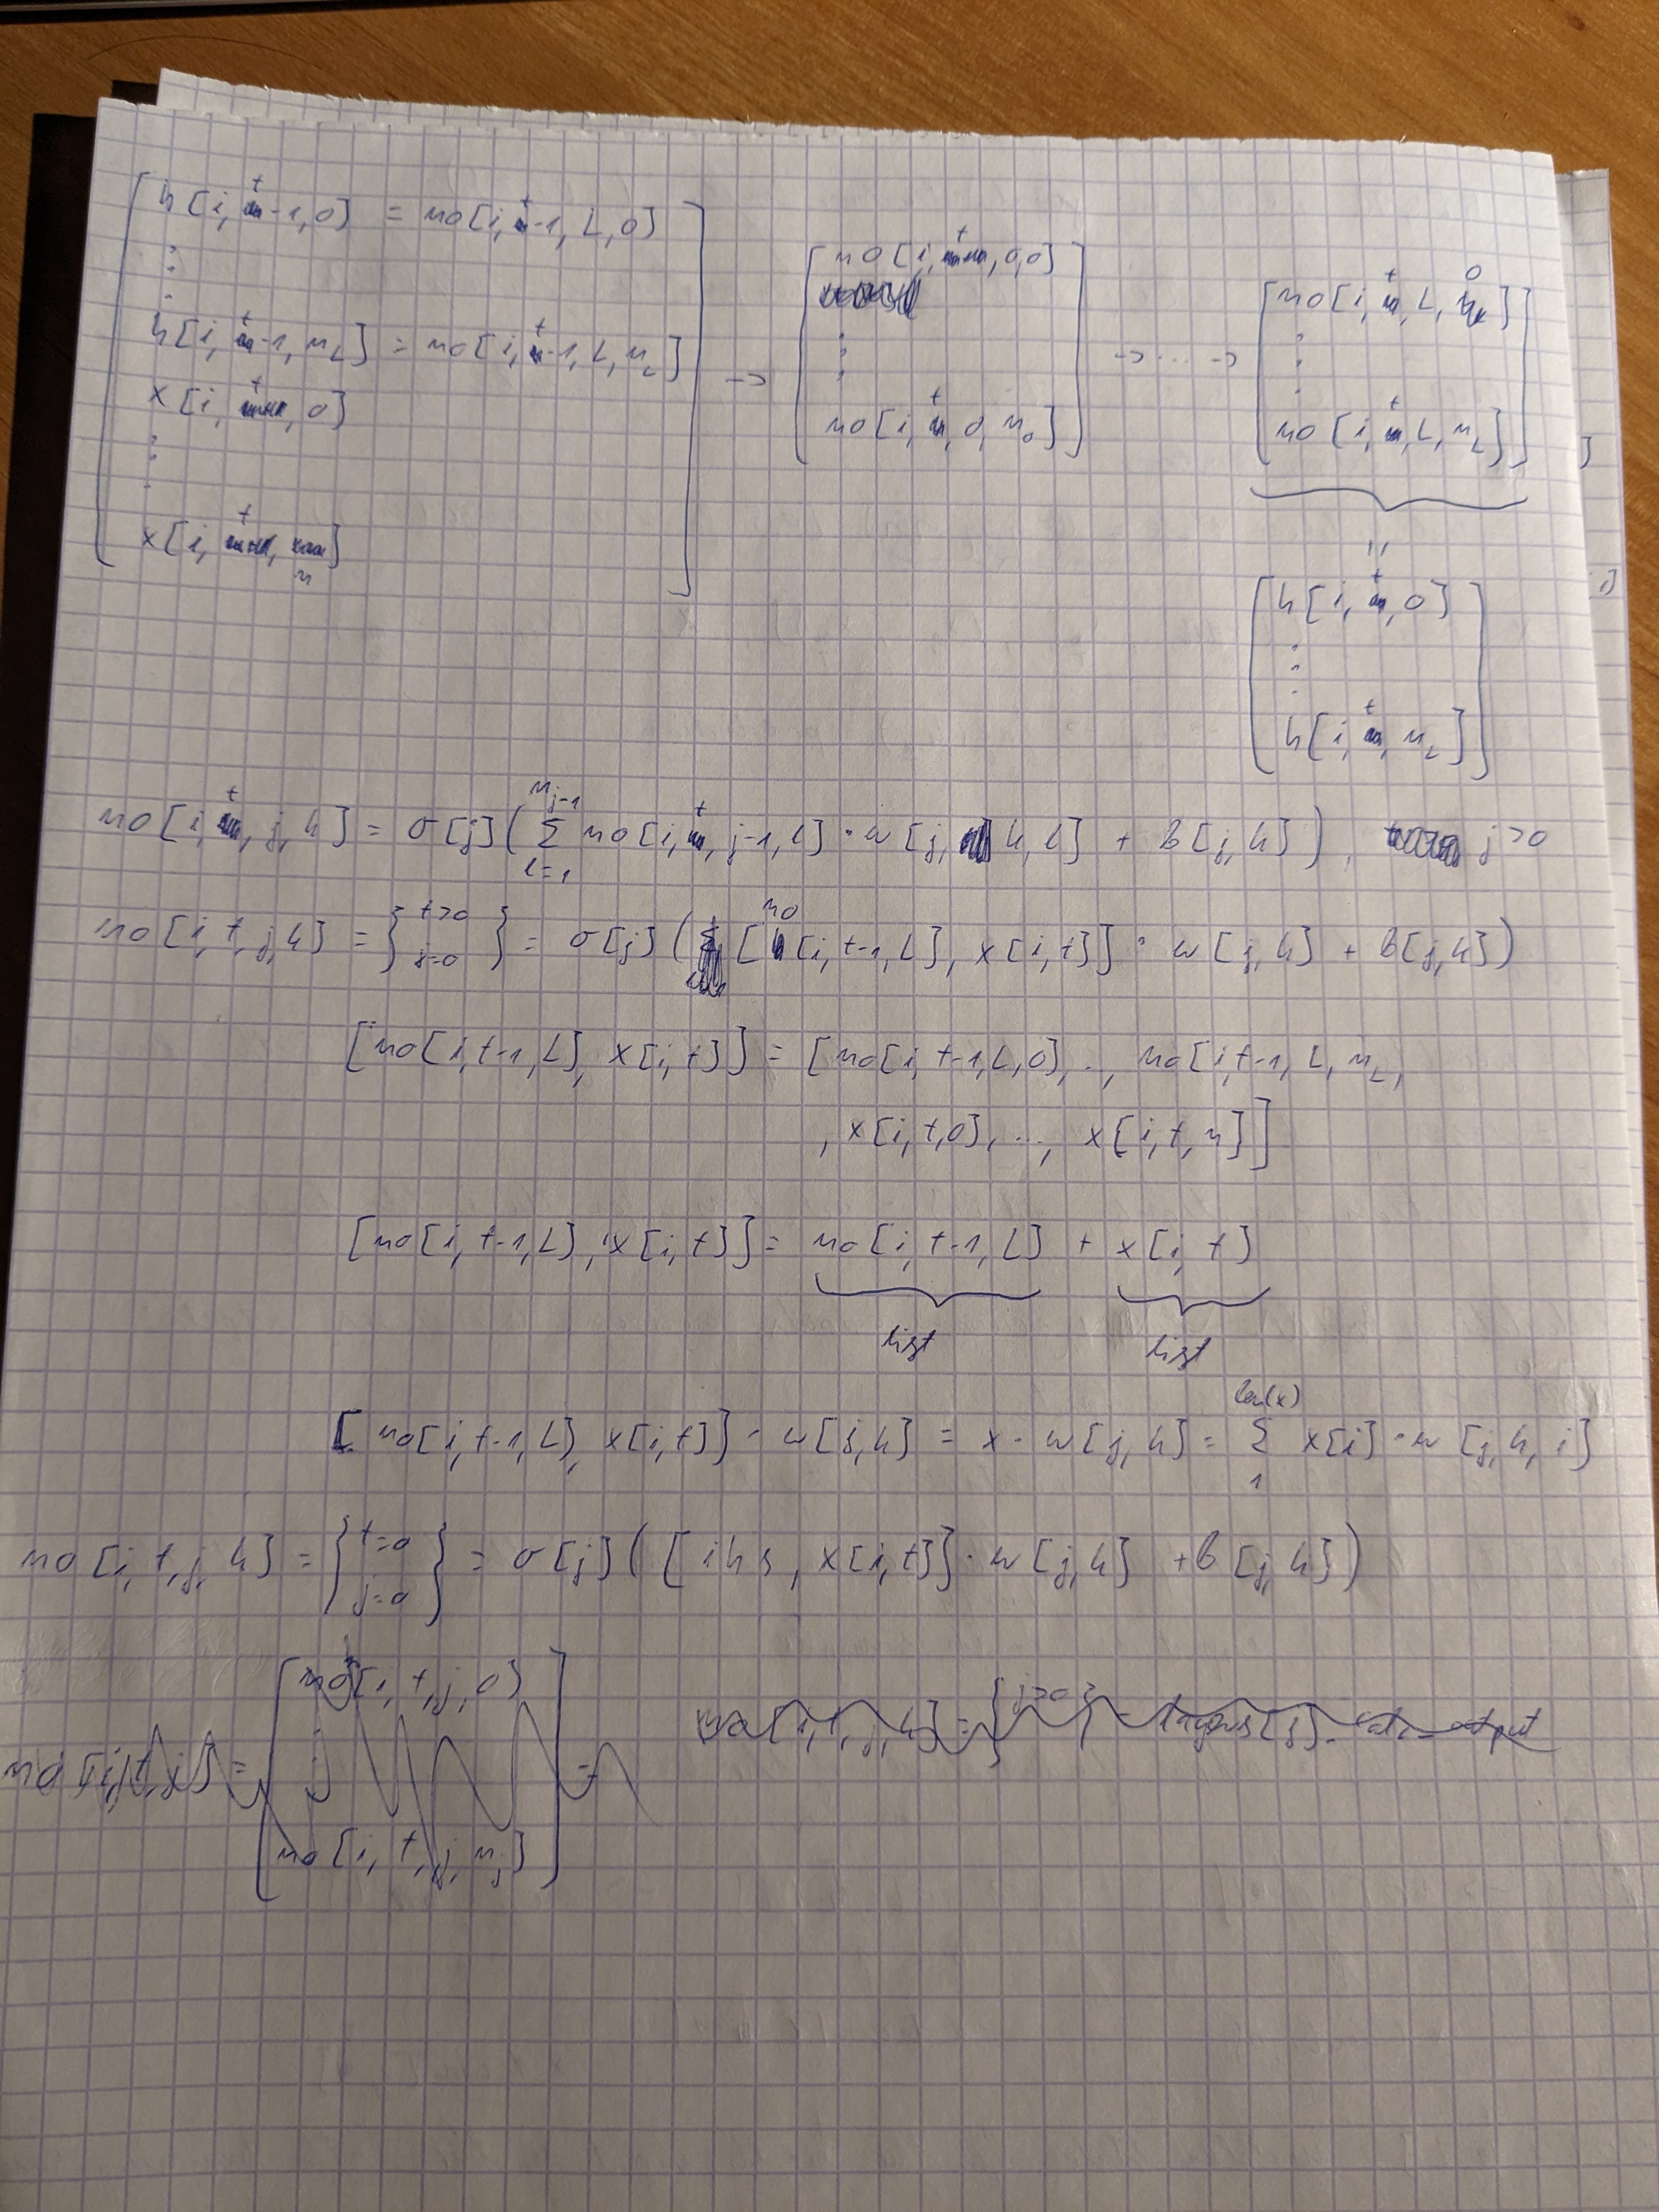 h[i, t-1, 0] = no[i, t-1, L, 0]
⋮
h[i, t-1, n_L] = no[i, t-1, L, n_L]
x[i, t, 0]
⋮
x[i, t, n]
→
no[i, t, 0, 0]
⋮
no[i, t, 0, n_0]
→ ... →
no[i, t, L, 0]
⋮
no[i, t, L, n_L]
=
h[i, t, 0]
⋮
h[i, t, n_L]
no[i, t, j, k] = σ[j](∑_{l=1}^{n_{j-1}} no[i, t, j-1, l] · w[j, k, l] + b[j, k]), j>0
no[i, t, j, k] = {t>0 j=0} = σ[j]([no[i, t-1, L], x[i, t]] · w[j, k] + b[j, k])
[no[i, t-1, L], x[i, t]] = [no[i, t-1, L, 0], .., no[i, t-1, L, n_L,
, x[i, t, 0], ..., x[i, t, n]]
[no[i, t-1, L], x[i, t]] = no[i, t-1, L] + x[i, t]
list list
[no[i, t-1, L], x[i, t]] · w[j, k] = x · w[j, k] = ∑_{1}^{len(x)} x[i] · w[j, k, i]
no[i, t, j, k] = {t=0 j=0} = σ[j]([ihs, x[i, t]] · w[j, k] + b[j, k])
no[i, t, j] = [no[i, t, j, 0]
⋮
no[i, t, j, n_j]] =